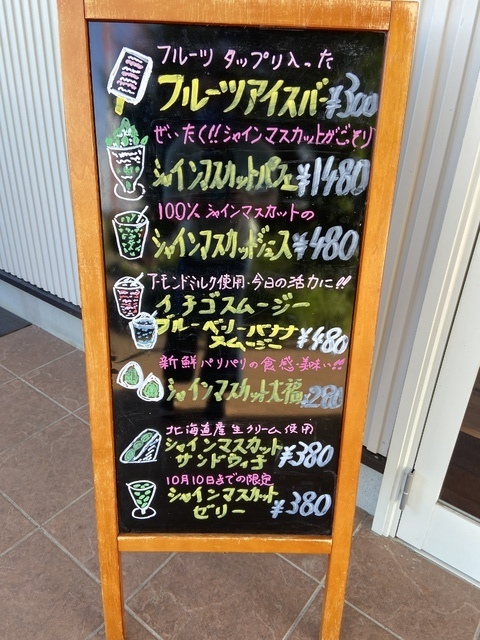 フルーツ タップリ入った
フルーツアイスバー ¥300
ぜいたく!!シャインマスカットがごそり
シャインマスカットパフェ ¥1480
100% シャインマスカットの
シャインマスカットジュース ¥480
アーモンドミルク使用・今日の活力に!!
イチゴスムージー
ブルーベリーバナナ
スムージー ¥480
新鮮パリパリの食感・美味い!!
シャインマスカット大福 ¥280
北海道産生クリーム使用
シャインマスカット
サンドウィッチ ¥380
10月10日までの限定
シャインマスカット
ゼリー ¥380